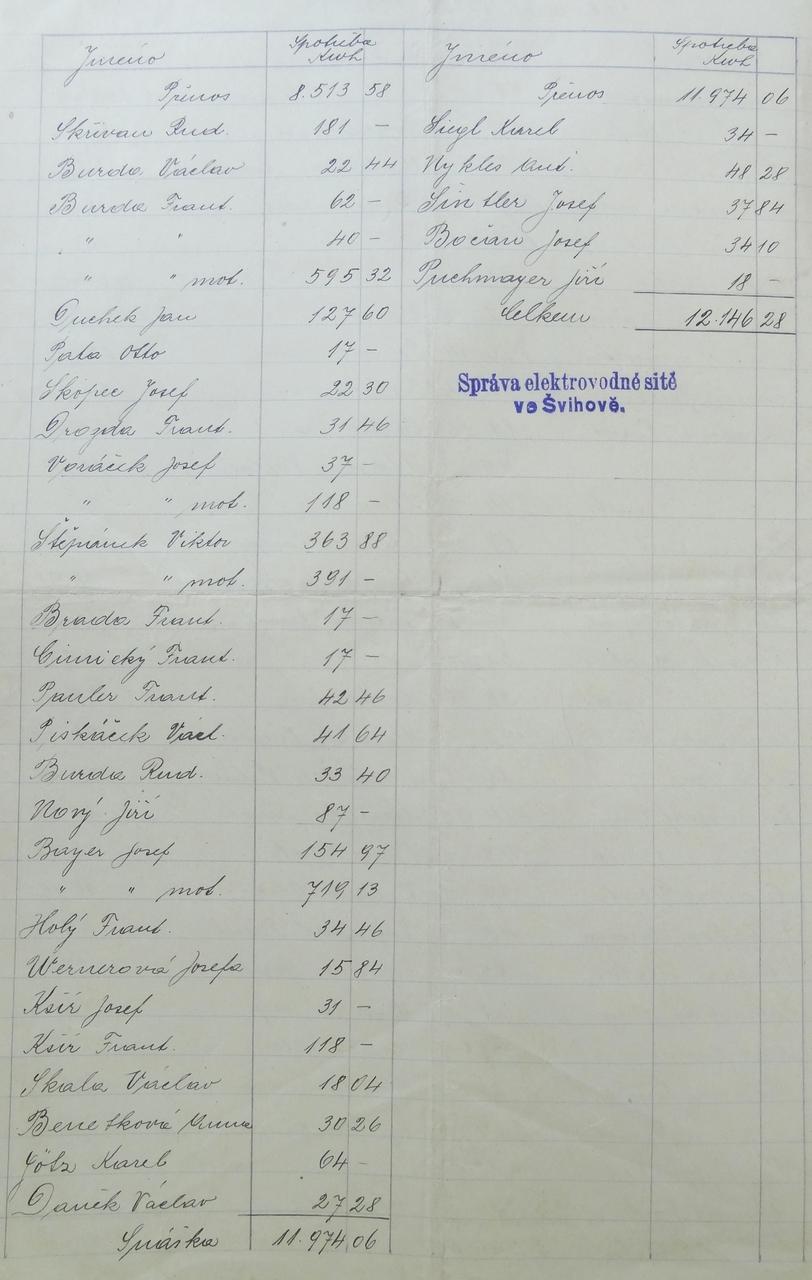 Jméno Spotřeba Kwh
Přenos 8.513 58
Skřivan Rud. 181 —
Burda Václav 22 44
Burda Frant. 62 —
" " 40 —
" " mot. 595 32
Jan 127 60
Pata Otto 17 —
Skopec Josef 22 30
Drozda Frant. 31 46
Voráček Josef 37 —
" " mot. 118 —
Štěpánek Viktor 363 88
" " mot. 391 —
Brada Frant. 17 —
Cimický Frant. 17 —
Pauler Frant. 42 46
Piskáček Václ. 41 64
Burda Rud. 33 40
Nový Jiří 87 —
Bayer Josef 154 97
" " mot. 719 13
Holý Frant. 34 46
Wernerová Josefa 15 84
Kšír Josef 31 —
Kšír Frant. 118 —
Skala Václav 18 04
Benetková Anna 30 26
Götz Karel 64 —
Daněk Václav 27 28
Snáška 11.974 06
Jméno Spotřeba Kwh
Přenos 11.974 06
Siegl Karel 34 —
Nykles Ant. 48 28
Šintler Josef 37 84
Bočan Josef 34 10
Puchmayer Jiří 18 —
Celkem 12.146 28
Správa elektrovodné sítě
ve Švihově.